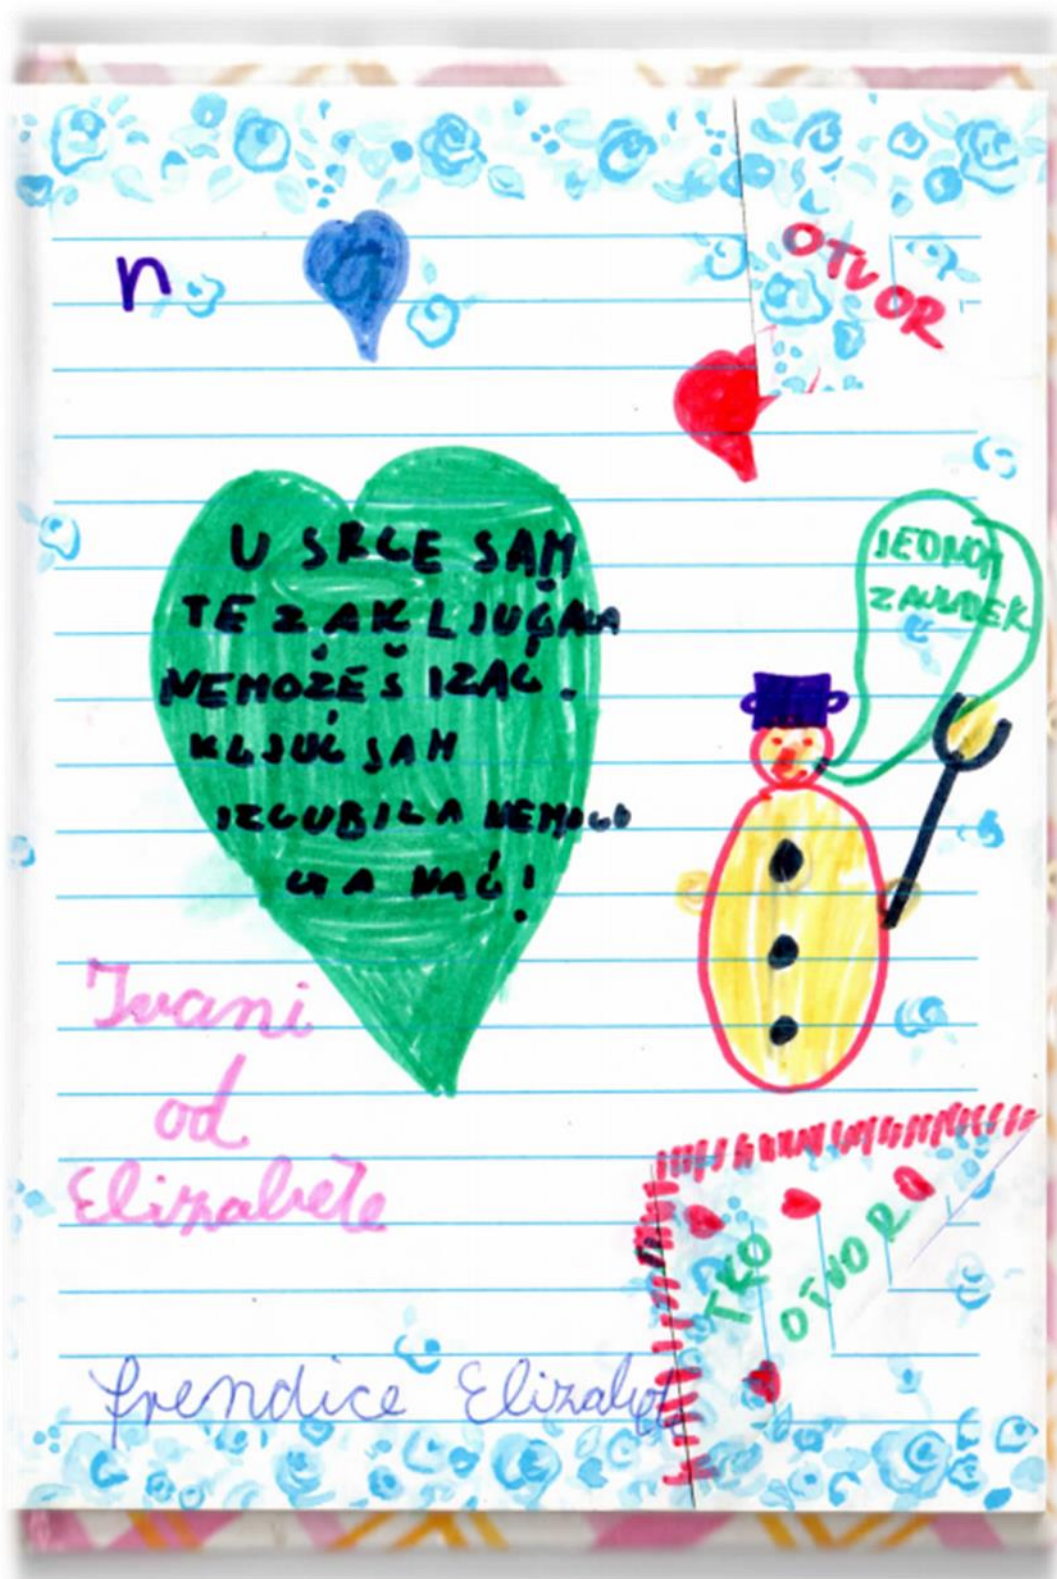 n
OTVOR
U SRCE SAM
TE ZAKLJUČALA
NEMOŽEŠ IZAĆ.
KLJUĆ SAM
IZGUBILA NEMOGU
GA NAĆ!
JEDNOM
ZAUVJEK
Ivani
od
Elizabete
TKO
OTVORO
frendice Elizabete